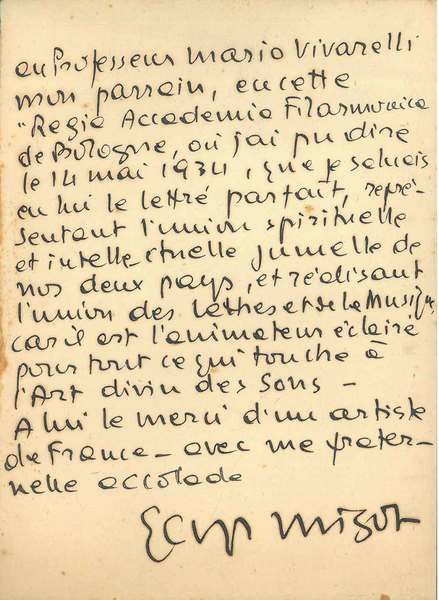 au Professeur Mario Vivarelli
mon parrain, en cette
"Regia Accademia Filarmonica
de Bologne, où j'ai pu dire
le 14 mai 1934, que je saluais
en lui le lettré parfait, repré-
sentant l'union spirituelle
et intellectuelle jumelle de
nos deux pays, et réalisant
l'union des lettres et de la Musique,
car il est l'animateur éclairé
pour tout ce qui touche à
l'Art divin des Sons -
A lui le merci d'un artiste
de France - avec une frater-
nelle accolade
Migot